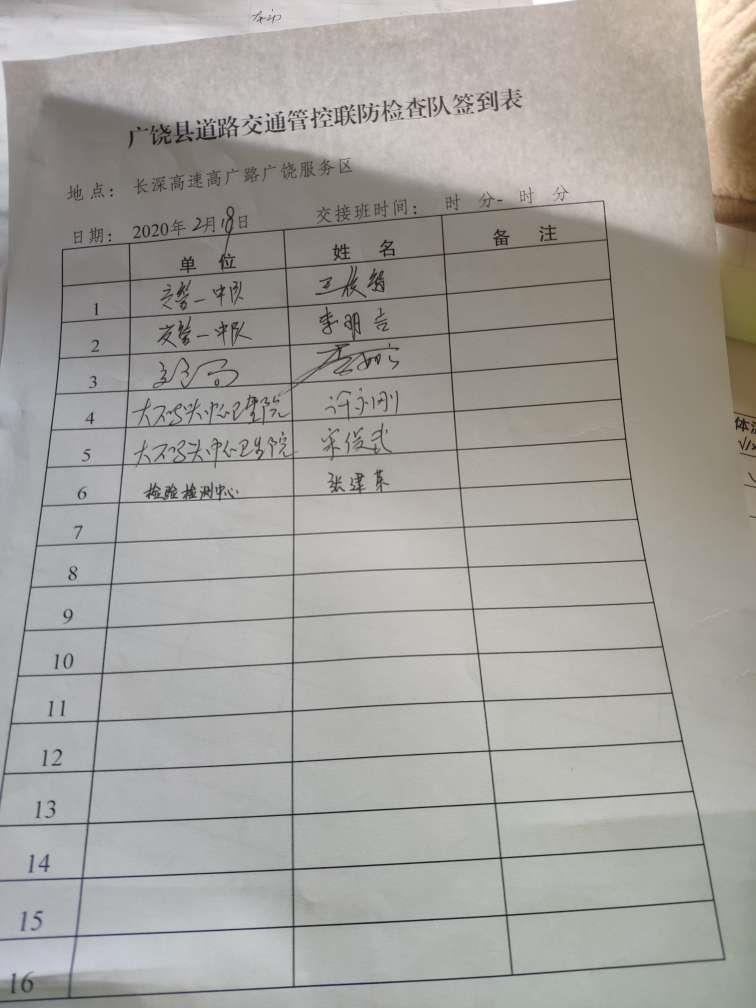 广饶县道路交通管控联防检查队签到表
地点： 长深高速高广路广饶服务区
日期： 2020年2月18日 交接班时间： 时 分- 时 分
单 位 姓 名 备 注
1 交警一中队
2 交警一中队 李明吉
3
4 大码头中心卫生院 许永刚
5 大码头中心卫生院 宋俊武
6 检验检测中心 张建英
7
8
9
10
11
12
13
14
15
16